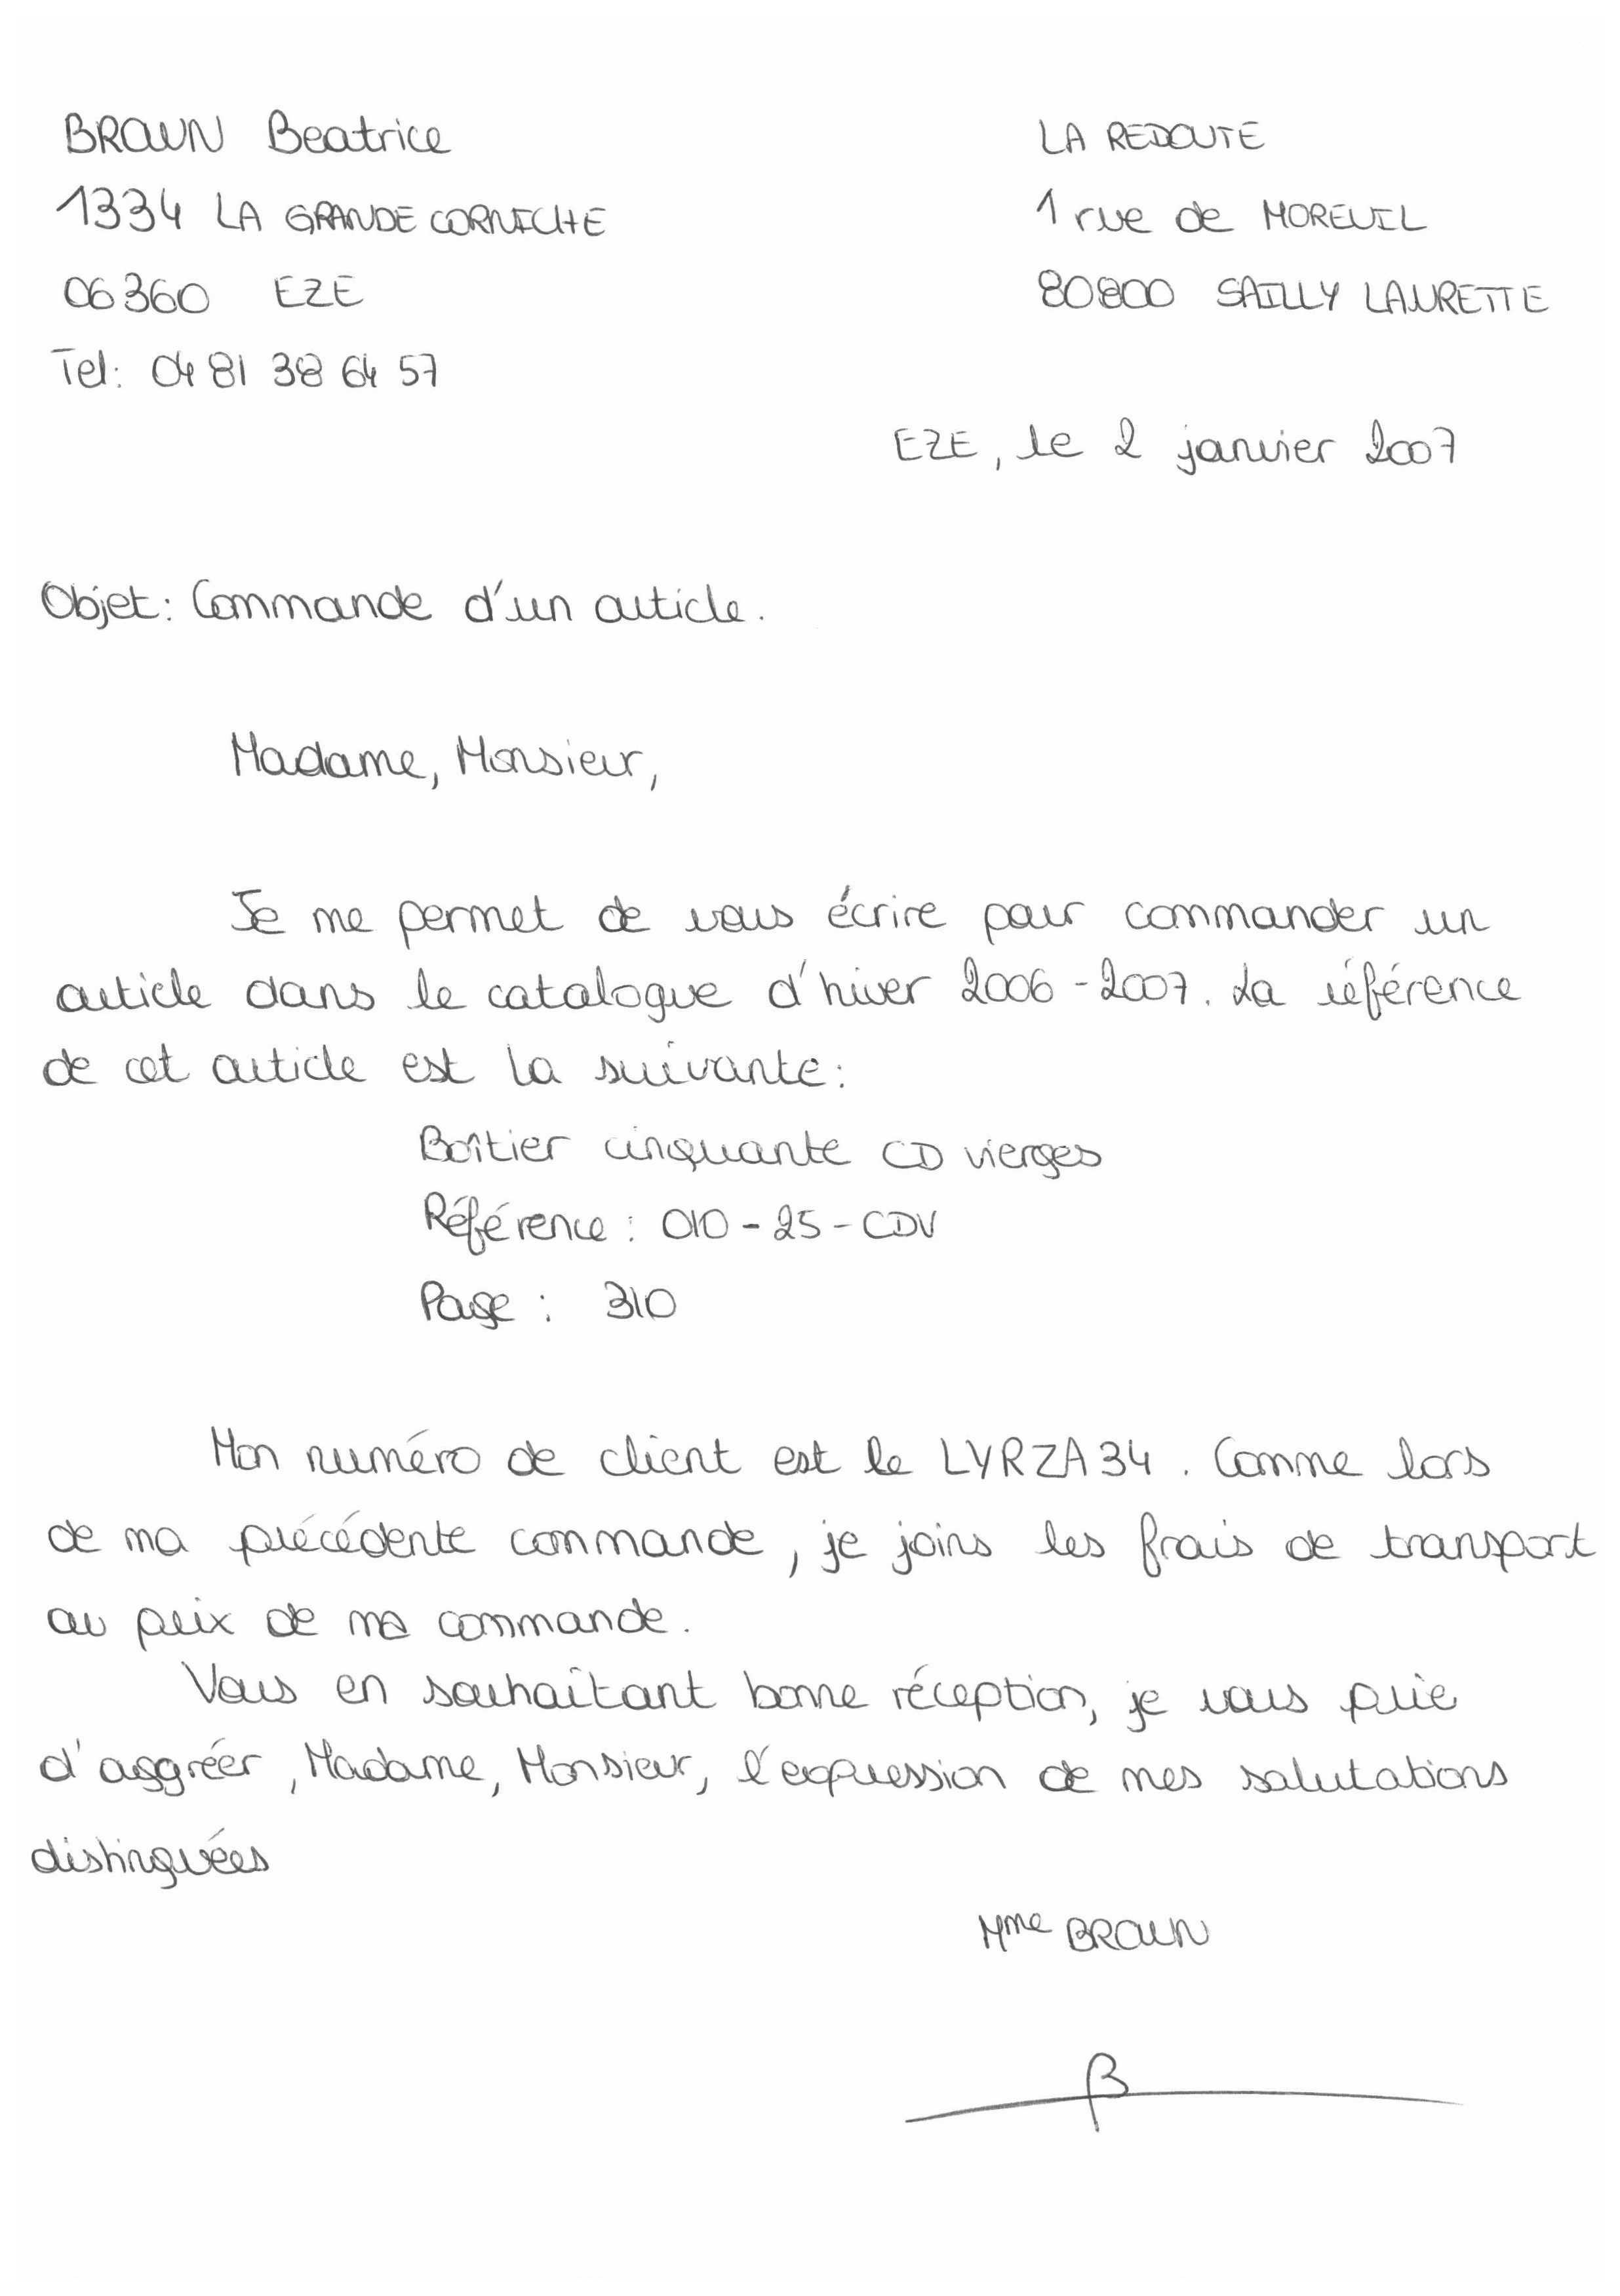 BRAUN Beatrice
1334 LA GRANDE CORNICHE
06360 EZE
Tel: 04 81 38 64 57
LA REDOUTE
1 rue de MOREUIL
80800 SAILLY LAURETTE
EZE, le 2 janvier 2007
Objet: Commande d'un article.
Madame, Monsieur,
Je me permet de vous écrire pour commander un
article dans le catalogue d'hiver 2006-2007. La référence
de cet article est la suivante:
Boîtier cinquante CD vierges
Référence : 010-25-CDV
Page : 310
Mon numéro de client est le LYRZA34. Comme lors
de ma précédente commande, je joins les frais de transport
au prix de ma commande.
Vous en souhaitant bonne réception, je vous prie
d'aggréer, Madame, Monsieur, l'expression de mes salutations
distinguées
Mme BRAUN
B